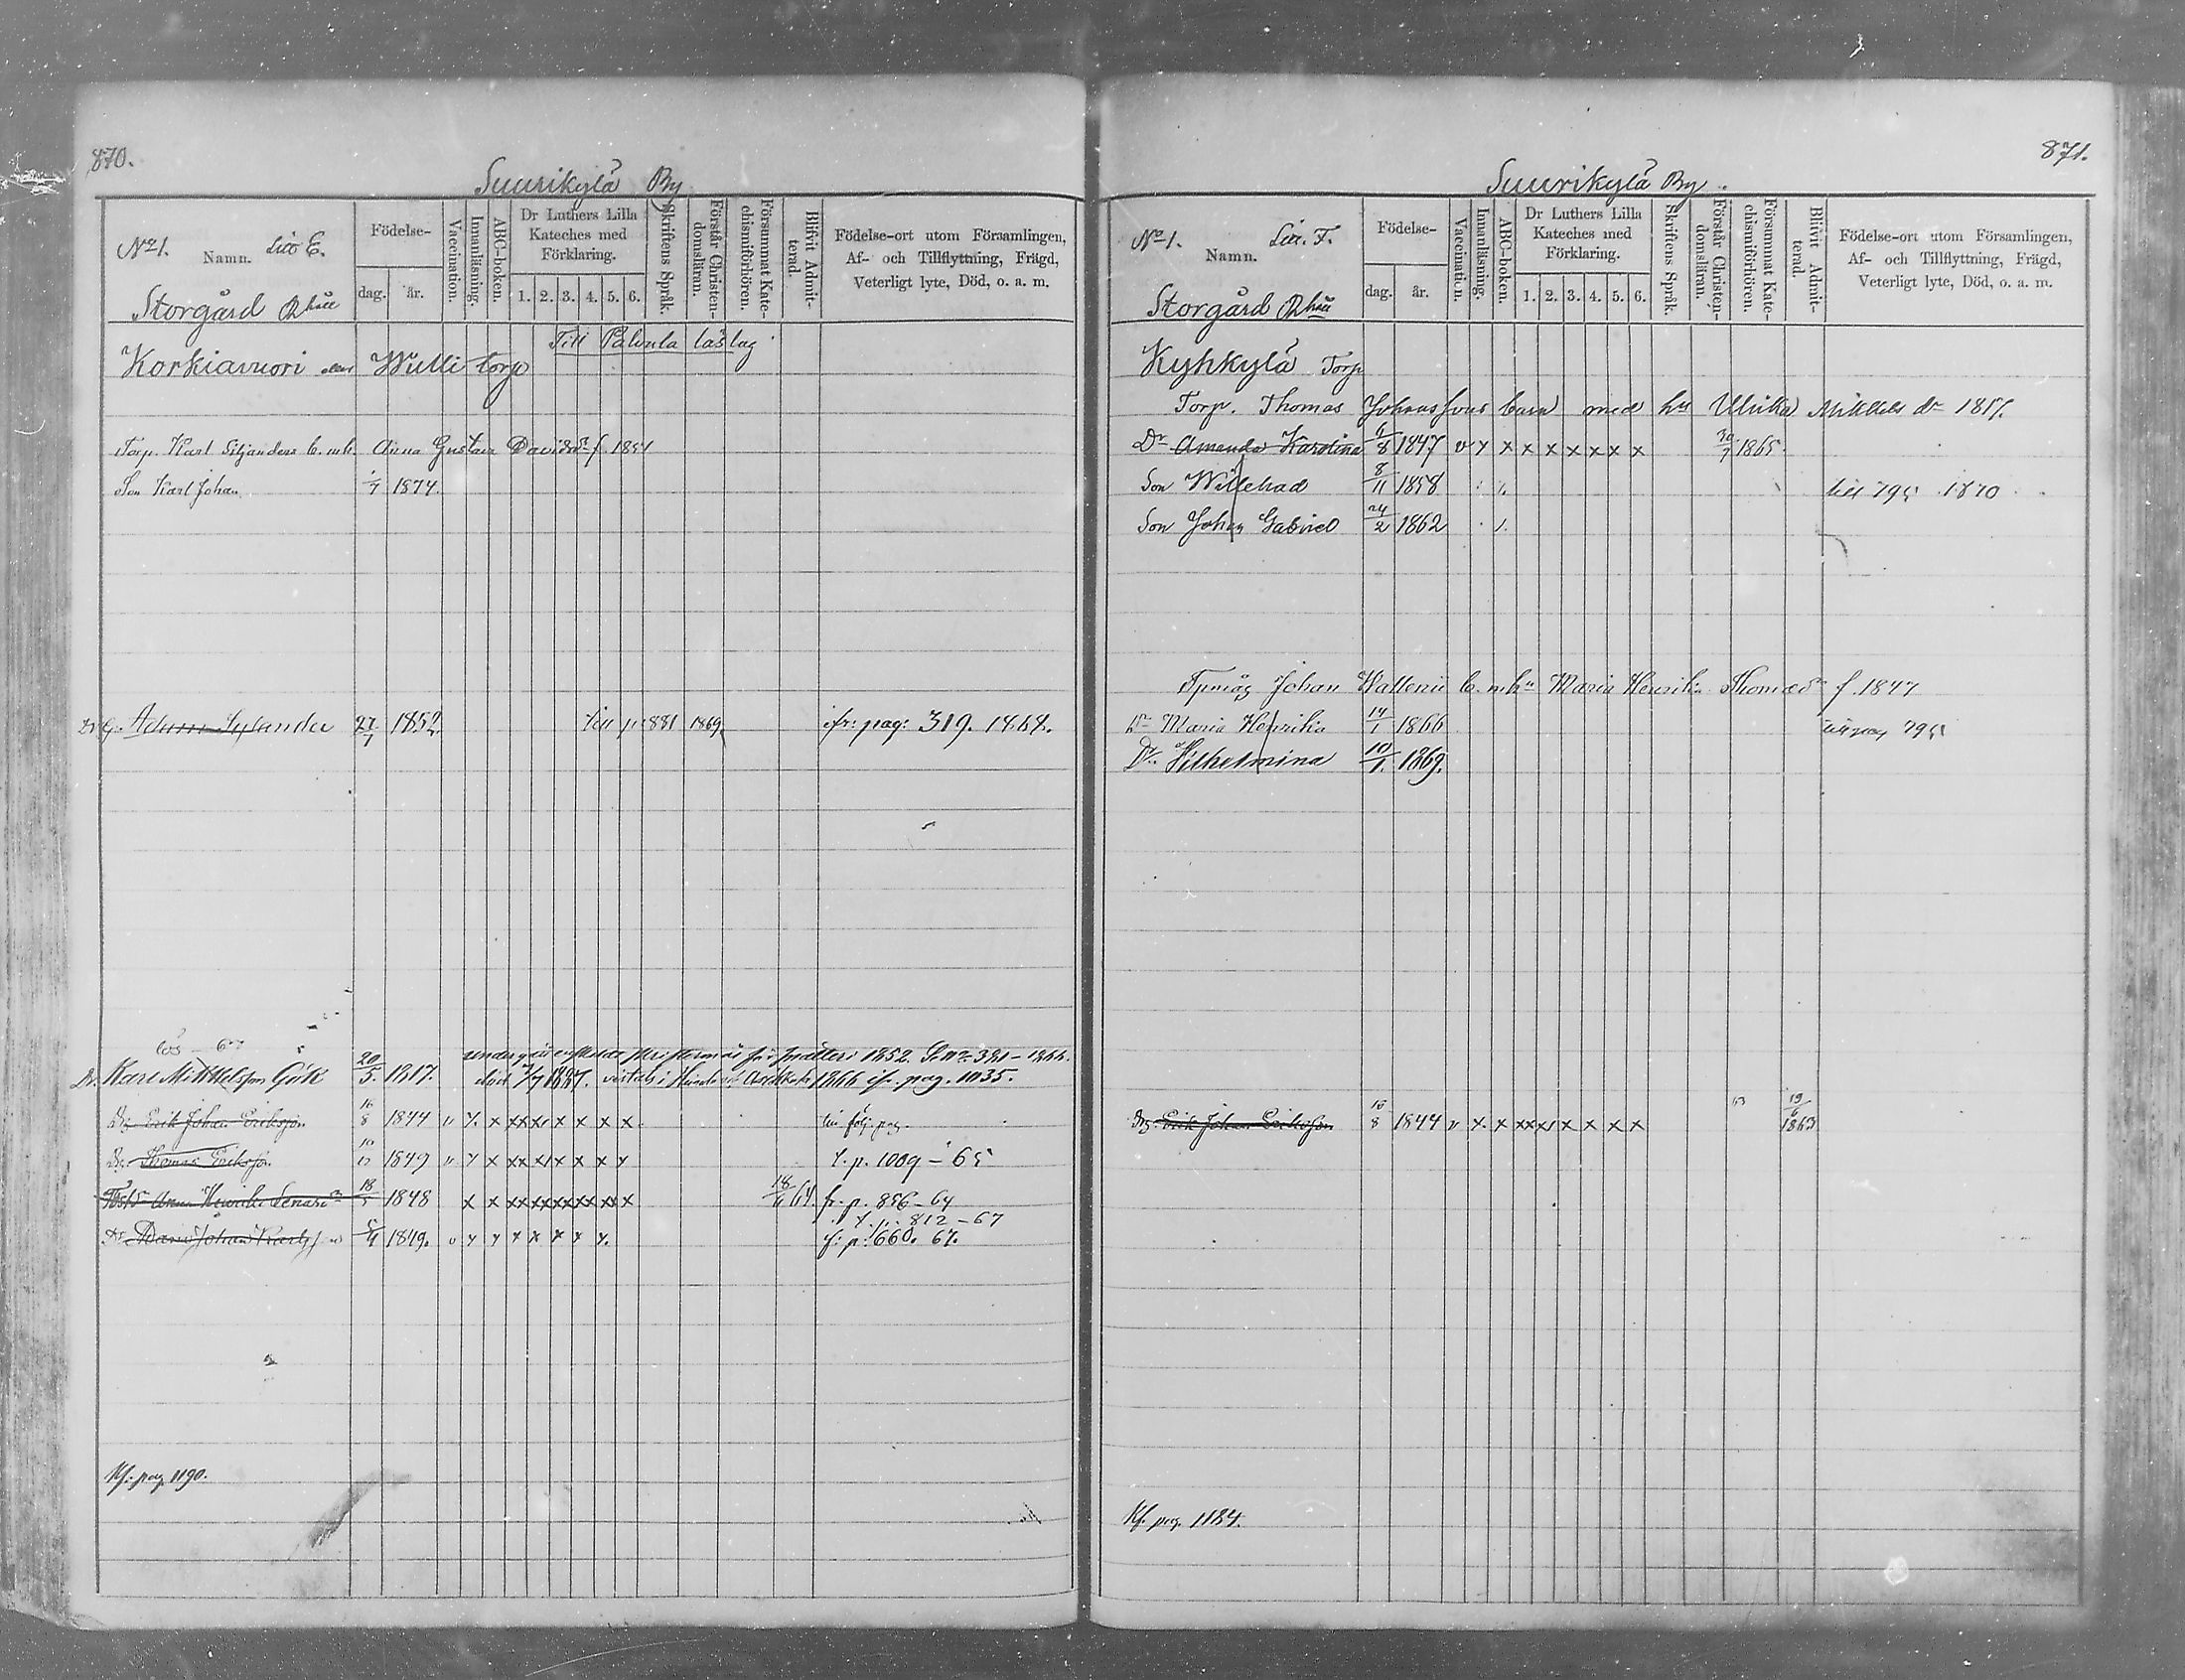 870.
Suurikylä By
No 1. Namn. Litt E.
Storgård Rhåll
Födelse-
dag. år.
Vaccination.
Innanläsning.
ABC-boken.
Dr Luthers Lilla Kateches med Förklaring.
1. 2. 3. 4. 5. 6.
Skriftens Språk.
Förstår Christendomsläran.
Försummat Katechismiförhören.
Blifvit Admitterad.
Födelse-ort utom Församlingen,
Af- och Tillflyttning, Frägd,
Veterligt lyte, Död, o. a. m.
Till Palvula läslag
Korkiavuori Wulli torp
Torp. Karl Siljanders b. m. h. Anna Gustava Davidsdr f. 1851
Son Karl Johan 1874.
Dr. Adam Sylander 27/7 185 Till p. 881 1869 ifr: pag: 319. 1868.
Dr. Karl Mikkelsson Gök 20/5. 1817. 1866 pag. 1035.
Drg Erik Johan Eriksson 16/8 1844 v x. x x x x x x x x till följ. pag.
Drg. Thomas Eriksson 1849 x x x x x x x x t. p. 1009 – 65
Anna Henrika 18 1848 x x x x x x x x x x 18/6 64 fr. p. 856 – 64
t. „ 812 – 67
Johan Karlsson 1849. v x x x x x x x. fr: p: 660. 67.
Kf. pag. 1190.
871.
Suurikylä By.
No 1. Namn. Litt. F.
Storgård Rhåll
Födelse-
dag. år.
Vaccination.
Innanläsning.
ABC-boken.
Dr Luthers Lilla Kateches med Förklaring.
1. 2. 3. 4. 5. 6.
Skriftens Språk.
Förstår Christendomsläran.
Försummat Katechismiförhören.
Blifvit Admitterad.
Födelse-ort utom Församlingen,
Af- och Tillflyttning, Frägd,
Veterligt lyte, Död, o. a. m.
Kyhkylä Torp
Torp. Thomas Johanssons barn med hu Ulrika Mikkels dr 1817.
Dr Amanda Karolina 6/8 1847 v x x x x x x x x 30/7 1865.
Son Willehad 8/11 1858 till 795 1870
Son Johan Gabriel 24/2 1862
Johan Wallenii b. m. hu Maria Henrika Thomasdr f. 1847
Dr Maria Henrika 14/1 1866 till pag 795
Dr. Wilhelmina 10/1. 1869.
Drg. Erik Johan Eriksson 16/8 1844 v x x x x x x x x x 63 19/6 1863
Kf. pag. 1184.